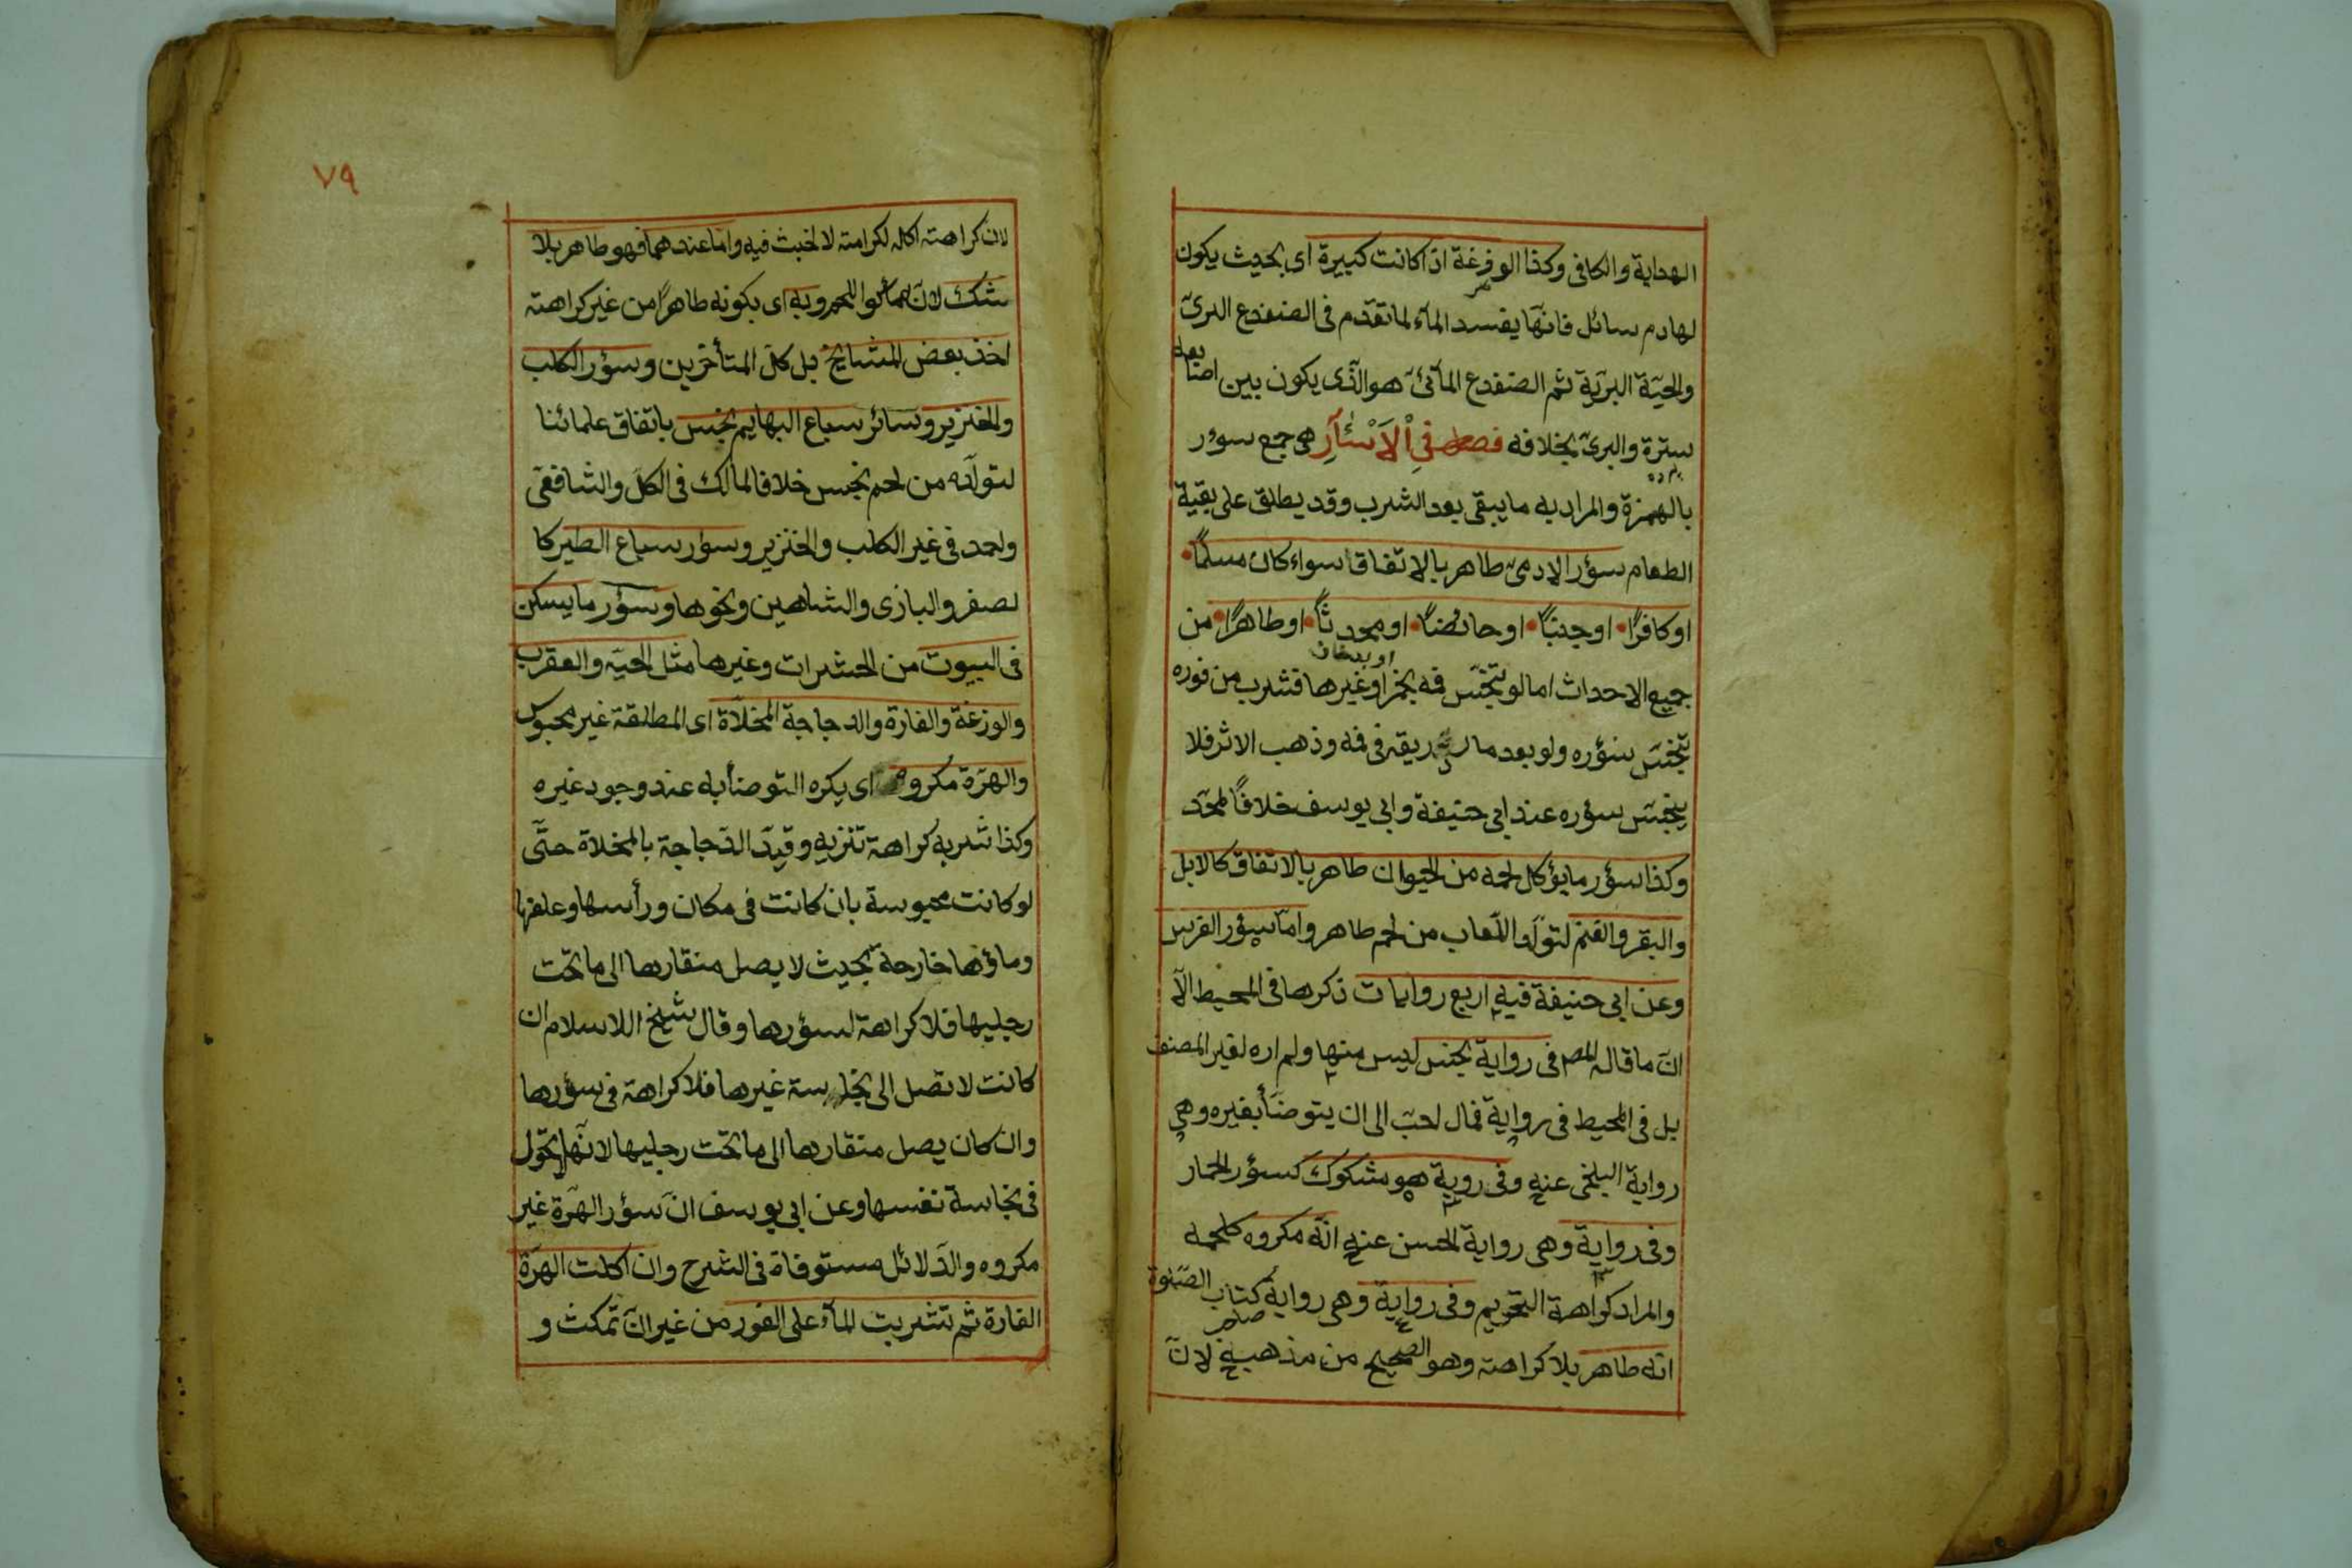 الهداية والكافى وكذا الوزغة اذا كانت كبيرة اى بحيث يكون
لها دم سائل فانها يفسد المآء لما تقدم فى الضفدع البرىّ
والحيّة البريّة ثم الضفدع المآئىّ هو الذى يكون بين اصابعه
سترة والبرىّ بخلافه فصل فى الاَسْآرِ هى جمع سؤر
بالهمزة والمراد به ما يبقى بعد الشرب وقد يطلق على بقية
الطعام سؤر الادمىّ طاهر بالاتفاق سواء كان مسلمًا
او كافرًا او جنبًا او حائضًا او محدثًا او طاهرًا من
جميع الاحداث اما لو تنجّس فمه بخمر او غيرها فشرب من فوره
تنجّس سؤره ولو بعد ما ردّد ريقه فى فمه وذهب الاثر فلا
ينجّس سؤره عند ابى حنيفة وابى يوسف خلافًا لمحمّد
وكذا سؤر ما يؤكل لحمه من الحيوان طاهر بالاتفاق كالابل
والبقر والغنم لتولّد اللّعاب من لحم طاهر وامّا سؤر الفرس
وعن ابى حنيفة فيه اربع روايات ذكرها فى المحيط الّا
انّ ما قاله المصم فى رواية نجس ليس منها ولم اره لغير المصنف
بل فى المحيط فى رواية قال احبّ الى ان يتوضّأ بغيره وهى
رواية البلخى عنه وفى روية هو مشكوك كسؤر الحمار
وفى رواية وهى رواية الحسن عنه انّه مكروه كلحمه
والمراد كراهة التحريم وفى رواية وهى رواية كتاب الصّلوة
انّه طاهر بلا كراهة وهو الصحيح من مذهبه لانّ
٧٩
لان كراهته اكاله لكرامته لا لخبث فيه وامّا عندهما فهو طاهر بلا
شك لانّهما كوا اللحم وبه اى بكونه طاهرًا من غير كراهته
اخذ بعض المشايخ بل كلّ المتأخّرين وسؤر الكلب
والخنزير وسائر سباع البهايم نجس باتفاق علمائنا
لتولّده من لحم نجس خلافا لمالك فى الكلّ والشافعىّ
واحمد فى غير الكلب والخنزير وسؤار سباع الطير كا
لصقر والبازى والشاهين ونحوها وسؤر ما يسكن
فى البيوت من الحشرات وغيرها مثل الحيّة والعقرب
والوزغة والفارة والدجاجة المخلّاة اى المطلقة غير محبوس
والهرّة مكروه اى يكره التوضأ به عند وجود غيره
وكذا شربه كراهة تنزيه وقيّد الدّجاجة بالمخلاة حتّى
لو كانت محبوسة بان كانت فى مكان ورأسها وعلفها
وماؤها خارجة بحيث لا يصل منقارها الى ما تحت
رجليها فلا كراهة لسؤرها وقال شيخ الاسلام ان
كانت لا تصل الى نجاسة غيرها فلا كراهة فى سؤرها
وان كان يصل منقارها الى ما تحت رجليها لانّها تجول
فى نجاسة نفسها وعن ابى يوسف انّ سؤر الهرّة غير
مكروه والدّلائل مستوفاة فى الشرح وان اكلت الهرّة
الفارة ثم شربت المآء على الفور من غير ان تمكث و